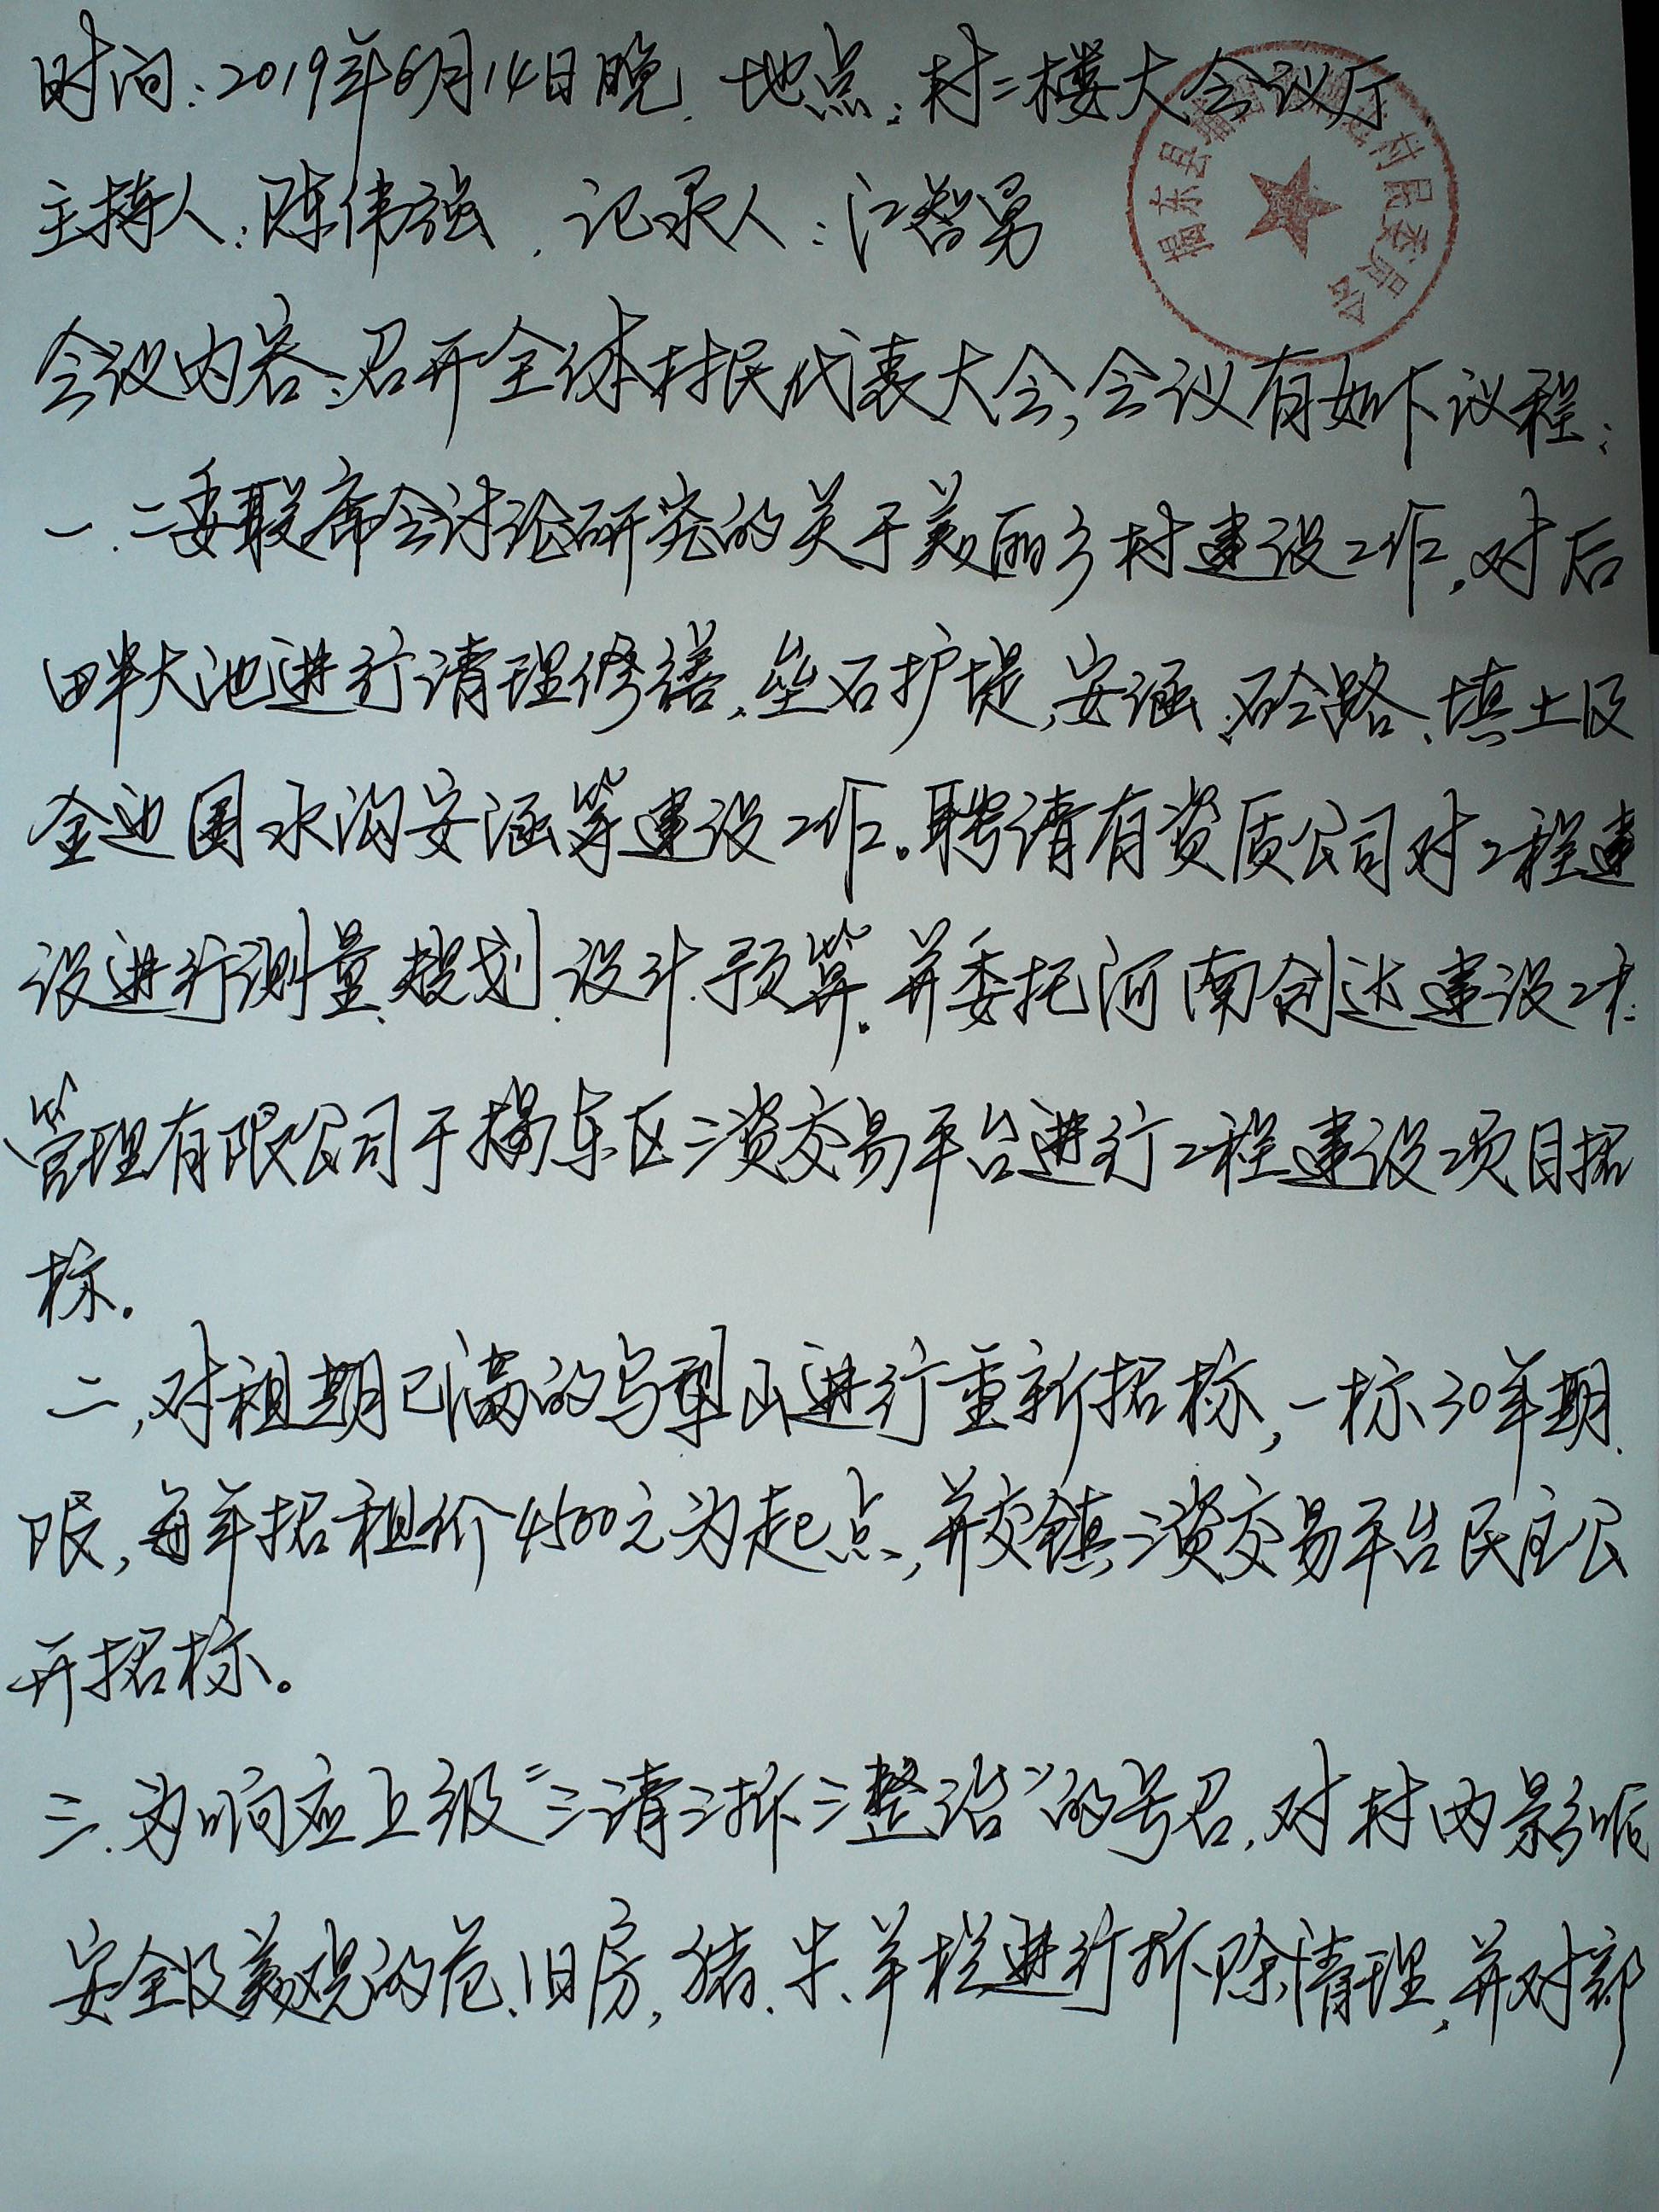 时间:2019年6月14日晚. 地点:村二楼大会议厅
主持人:陈伟强. 记录人:江智勇
揭东县 村民委员会
会议内容:召开全体村民代表大会,会议有如下议程:
一.二委联席会讨论研究的关于美丽乡村建设工作,对后
畔大池进行清理修缮、垒石护堤、安涵、砼路、填土及
金边围水沟安涵等建设工作。聘请有资质公司对工程建
设进行测量、规划、设计、预算。并委托河南创达建设工程
管理有限公司于揭东区三资交易平台进行工程建设项目招
标.
二,对租期已满的乌犁山进行重新招标,一标30年期
限,每年招租价4500元为起点,并交镇三资交易平台民主公
开招标。
三.为响应上级“三清三拆三整治”的号召,对村内影响
安全及美观的危、旧房,猪、牛、羊栏进行拆除清理,并对部